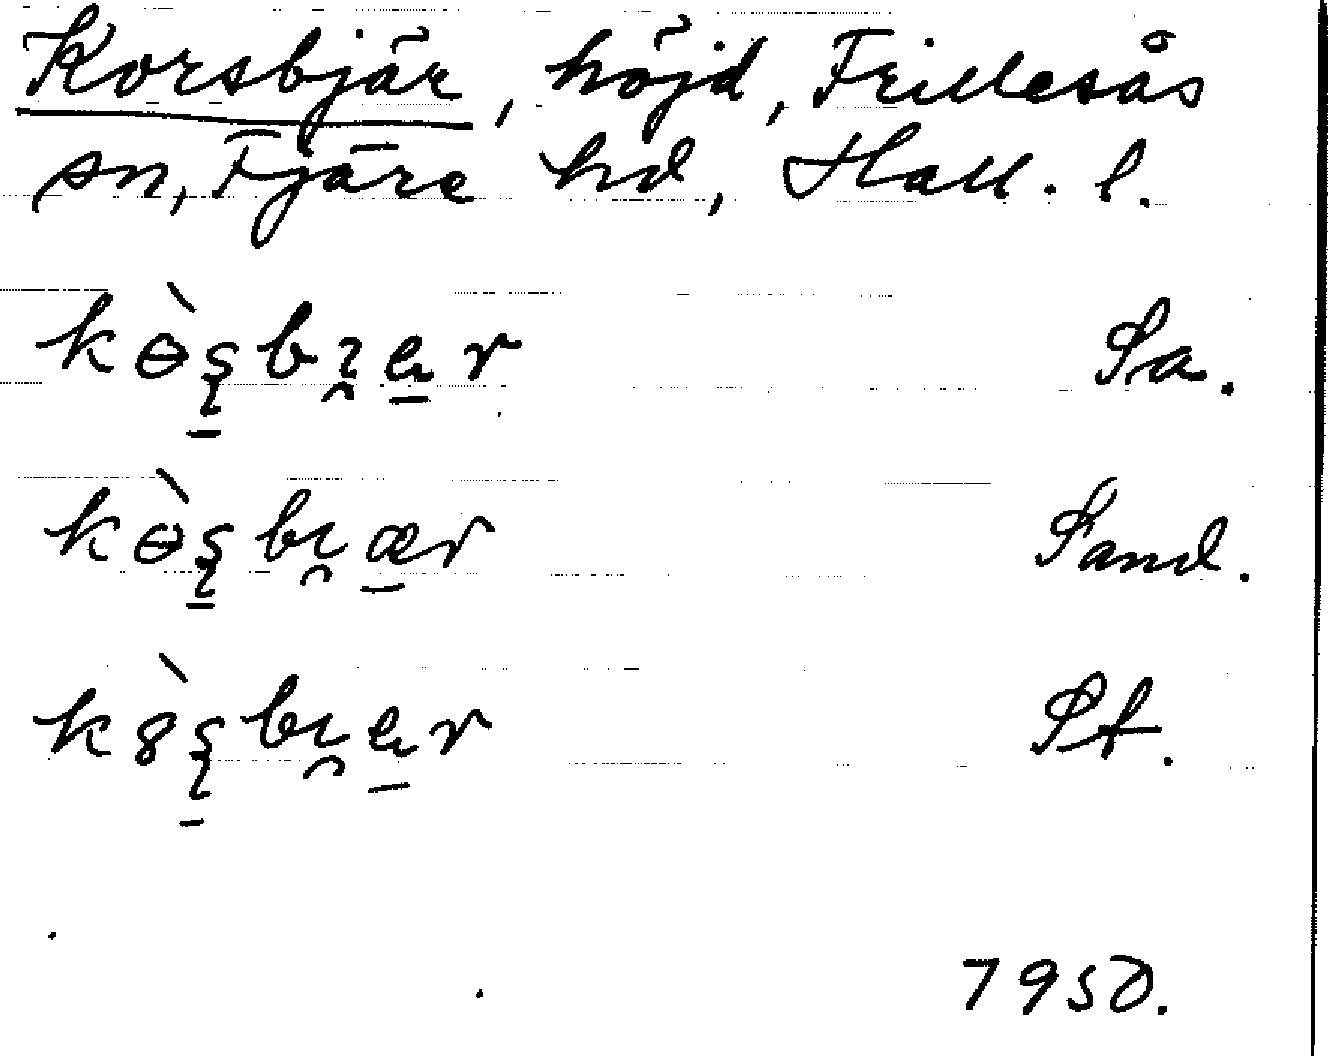 Korsbjär, höjd, Frillesås
sn, Fjäre hd, Hall. l.
kɵ̀ʂbı̯ær Sa.
kɵ̀ʂbı̯ær Sand.
k8̀ʂbı̯ær St.
1950.